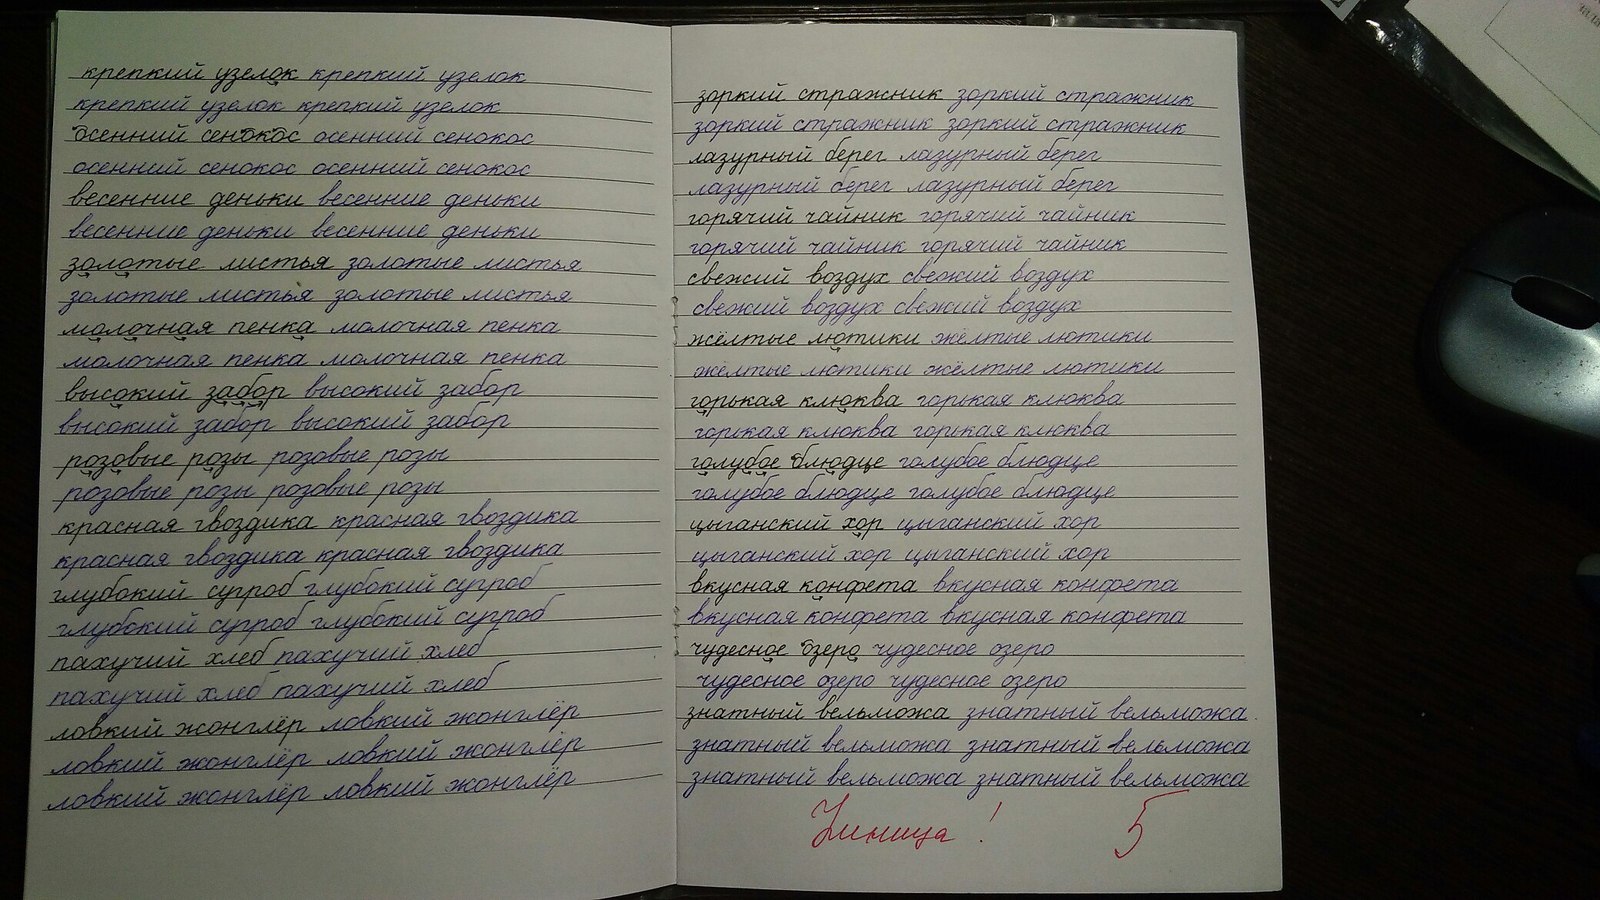 крепкий узелок крепкий узелок
крепкий узелок крепкий узелок
осенний сенокос осенний сенокос
осенний сенокос осенний сенокос
весенние деньки весенние деньки
весенние деньки весенние деньки
золотые листья золотые листья
золотые листья золотые листья
молочная пенка молочная пенка
молочная пенка молочная пенка
высокий забор высокий забор
высокий забор высокий забор
розовые розы розовые розы
розовые розы розовые розы
красная гвоздика красная гвоздика
красная гвоздика красная гвоздика
глубокий сугроб глубокий сугроб
глубокий сугроб глубокий сугроб
пахучий хлеб пахучий хлеб
пахучий хлеб пахучий хлеб
ловкий жонглёр ловкий жонглёр
ловкий жонглёр ловкий жонглёр
ловкий жонглёр ловкий жонглёр
зоркий стражник зоркий стражник
зоркий стражник зоркий стражник
лазурный берег лазурный берег
лазурный берег лазурный берег
горячий чайник горячий чайник
горячий чайник горячий чайник
свежий воздух свежий воздух
свежий воздух свежий воздух
жёлтые лютики жёлтые лютики
желтые лютики жёлтые лютики
горькая клюква горькая клюква
горькая клюква горькая клюква
голубое блюдце голубое блюдце
голубое блюдце голубое блюдце
цыганский хор цыганский хор
цыганский хор цыганский хор
вкусная конфета вкусная конфета
вкусная конфета вкусная конфета
чудесное озеро чудесное озеро
чудесное озеро чудесное озеро
знатный вельможа знатный вельможа
знатный вельможа знатный вельможа
знатный вельможа знатный вельможа
Умница! 5